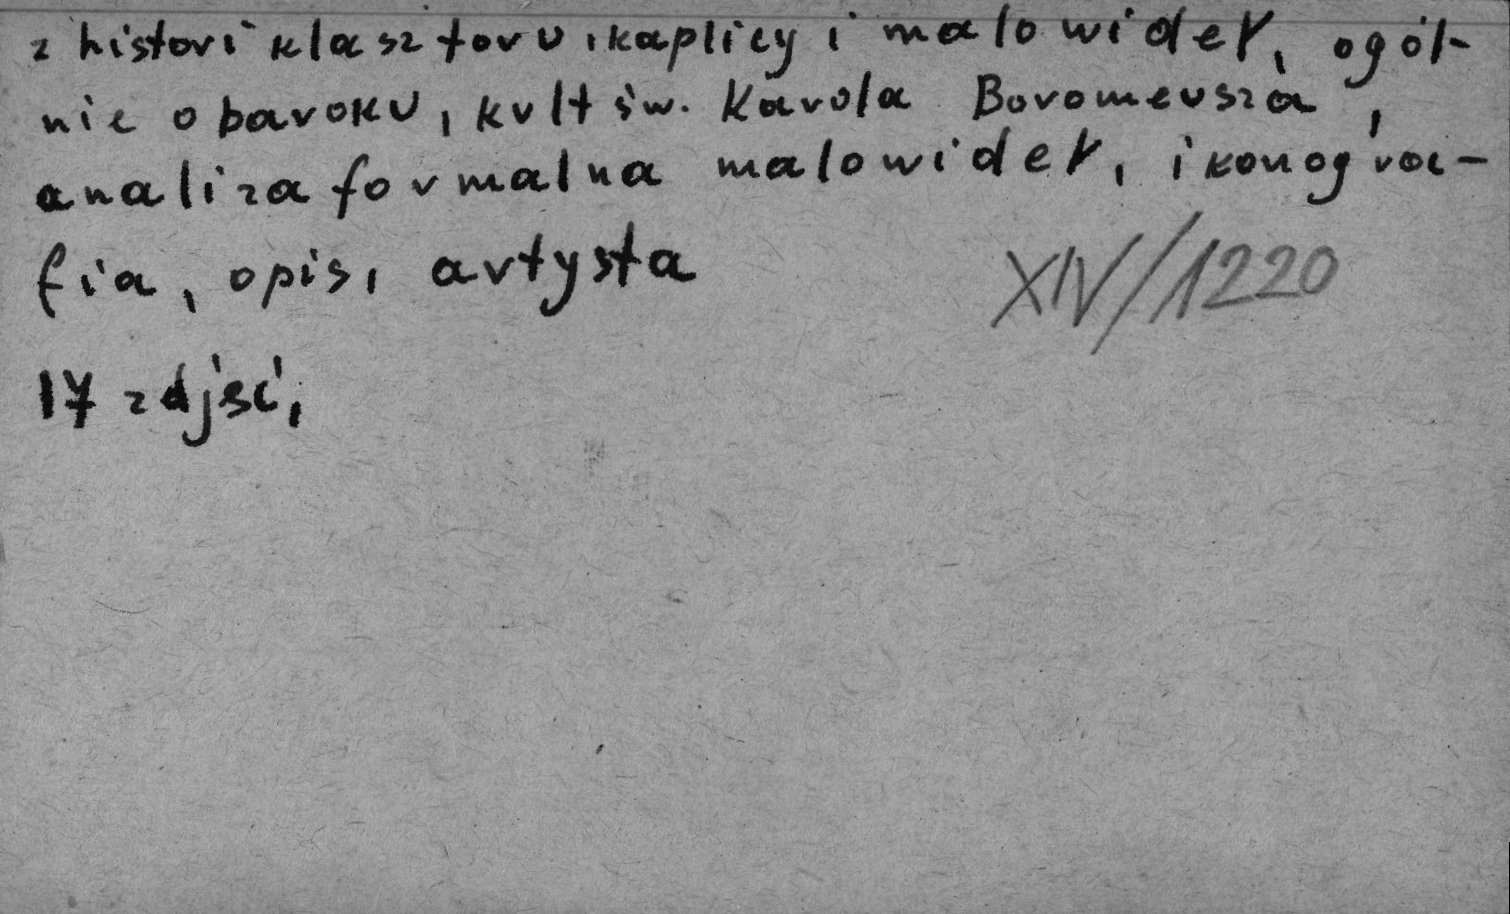 z histori klasztoru, kaplicy i malowideł, ogól-
nie o baroku, kult św. Karola Boromeusza,
analiza formalna malowideł, ikonogra-
fia, opis, artysta
XIV/1220
17 zdjęć,